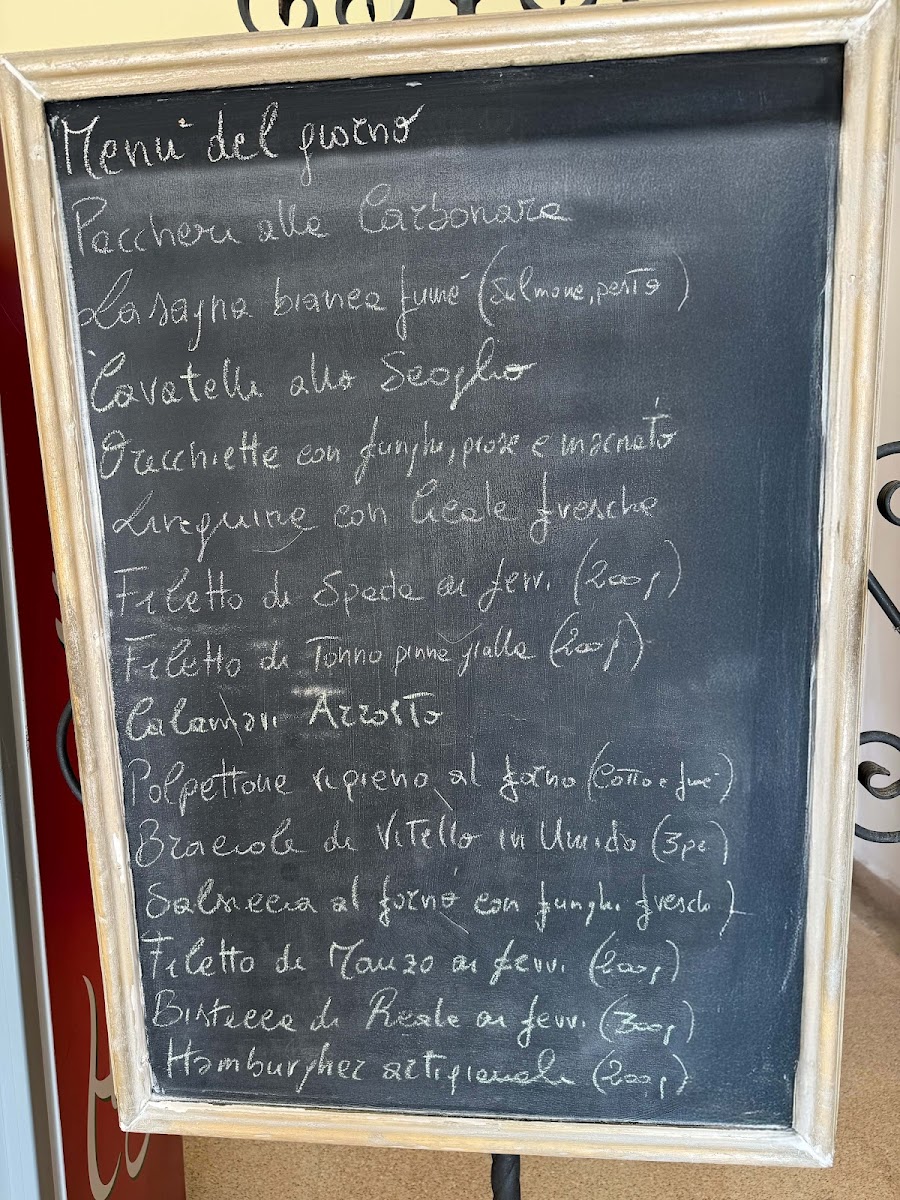 Menù del giorno
Paccheri alla Carbonara
Lasagna bianca fumé (Salmone, pesto)
Cavatelli allo Scoglio
Orecchiette con funghi,Prose e macinato
Linguine con Cicale fresche
Filetto di Spada ai ferri (200g)
Filetto di Tonno pinne gialle (200g)
Calamari Arrosto
Polpettone ripieno al forno (Cotto e fumé)
Braciole di Vitello in Umido (3pz)
Salsiccia al forno con funghi freschi)
Filetto di Manzo ai ferri (200g)
Bistecca di Reale ai ferri (300g)
Hamburgher artigianale (200g)